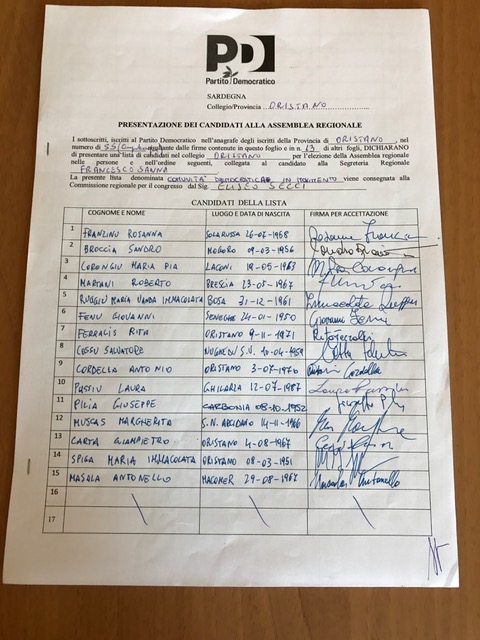 PD
Partito Democratico
SARDEGNA
Collegio/Provincia ORISTANO
PRESENTAZIONE DEI CANDIDATI ALLA ASSEMBLEA REGIONALE
I sottoscritti, iscritti al Partito Democratico nell'anagrafe degli iscritti della Provincia di ORISTANO, nel
numero di risultante dalle firme contenute in questo foglio e in n. 13 di altri fogli, DICHIARANO
di presentare una lista di candidati nel collegio ORISTANO per l'elezione della Assemblea regionale
nelle persone e nell'ordine seguenti, collegata al candidato alla Segreteria Regionale
FRANCESCO SANNA
La presente lista denominata COMUNITA' DEMOCRATICHE IN MOVIMENTO viene consegnata alla
Commissione regionale per il congresso dal Sig. ELISEO SECCI
CANDIDATI DELLA LISTA
COGNOME E NOME LUOGO E DATA DI NASCITA FIRMA PER ACCETTAZIONE
1 FRANZINU ROSANNA SOLARUSSA 26-07-1958
2 BROCCIA SANDRO MOGORO 09-03-1956
3 CORONGIU MARIA PIA LACONI 18-05-1963
4 MARTANI ROBERTO BRESCIA 13-05-1967
5 RUGGIU MARIA VANDA IMMACOLATA BOSA 31-12-1961
6 FENU GIOVANNI SENEGHE 24-01-1950 Giovanni Fenu
7 FERRALIS RITA ORISTANO 9-11-1971
8 COSSU SALVATORE NUGHEDU S.V. 10-04-1959
9 CORDELLA ANTONIO ORISTANO 3-07-1976 Antonio Cordella
10 PASSIU LAURA GHILARZA 12-07-1987
11 PILIA GIUSEPPE CARBONIA 08-10-1952
12 MUSCAS MARGHERITA S.N. ARCIDANO 14-11-1966
13 CARTA GIAMPIETRO ORISTANO 4-08-1967
14 SPIGA MARIA IMMACOLATA ORISTANO 08-03-1951
15 MASALA ANTONELLO MACOMER 29-08-1967 Masala Antonello
16
17